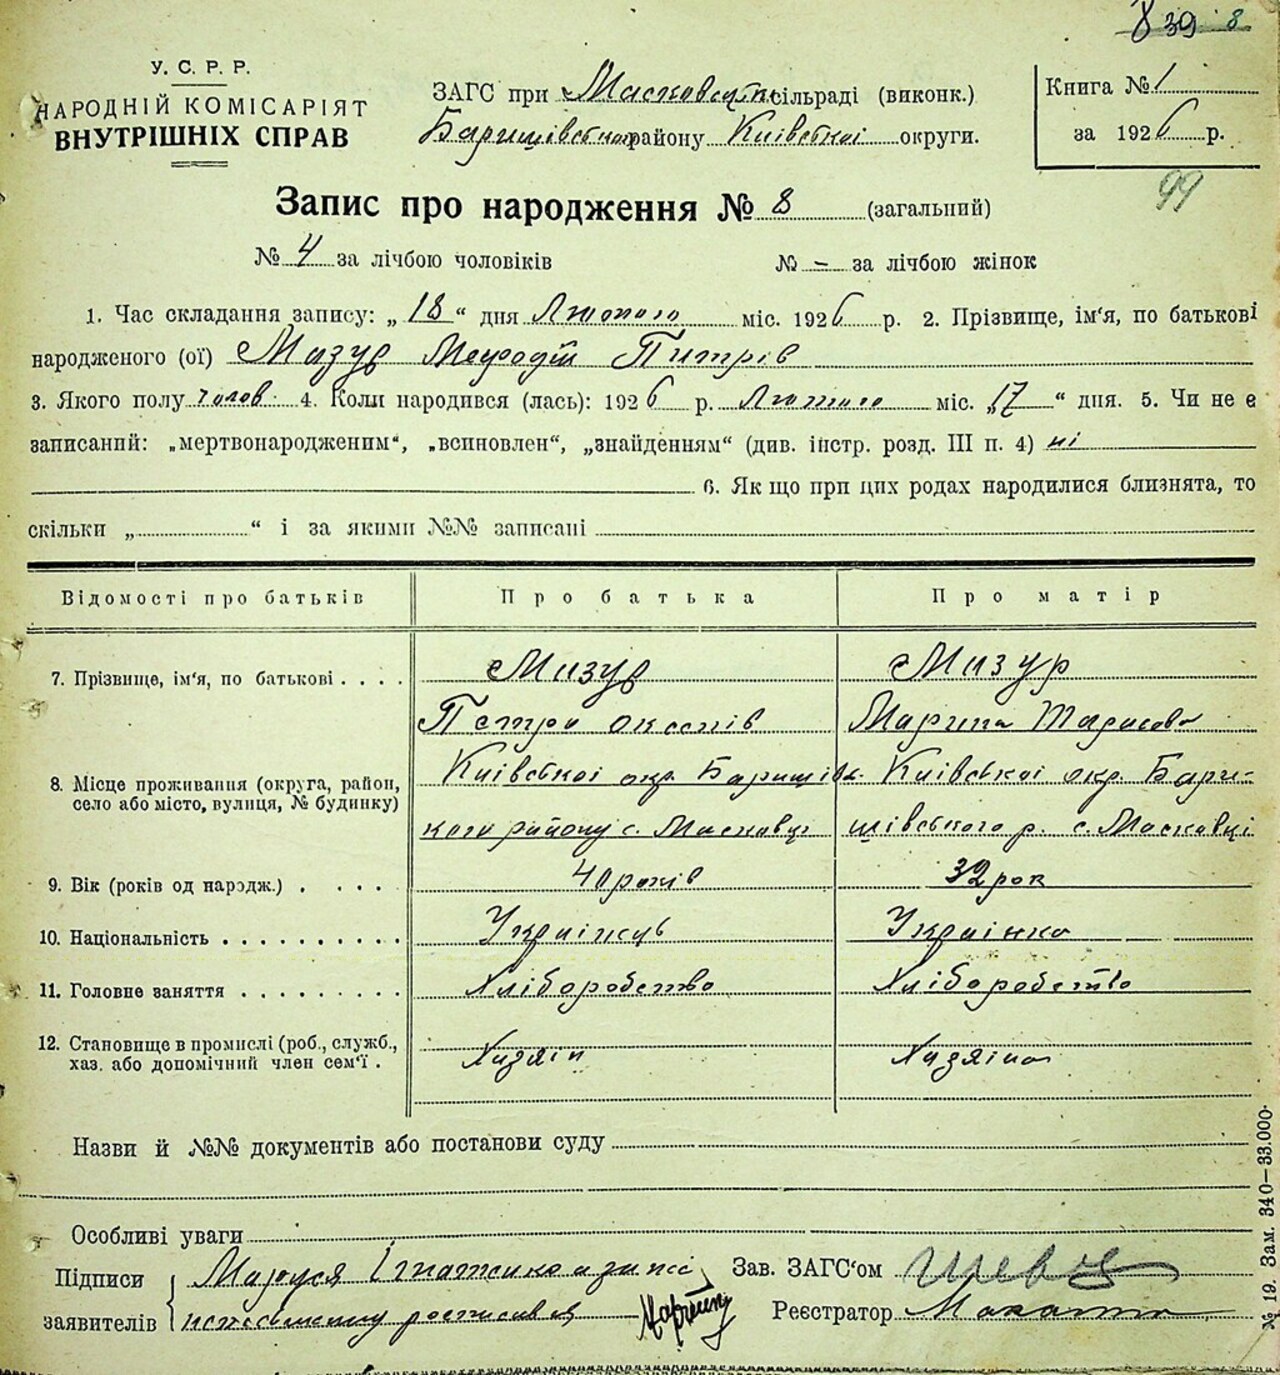 839 8
У. С. Р. Р.
НАРОДНІЙ КОМІСАРІЯТ
ВНУТРІШНІХ СПРАВ
ЗАГС при Масковецькій сільраді (виконк.)
Баришівського району Київської округи.
Книга № 1
за 1926 р.
99
Запис про народження № 8 (загальний)
№ 4 за лічбою чоловіків № – за лічбою жінок
1. Час складання запису: „18“ дня Лютого міс. 1926 р. 2. Прізвище, ім'я, по батькові
народженого (ої) Мазур Мефодій Питрів
3. Якого полу чолов. 4. Коли народився (лась): 1926 р. Лютого міс. „17“ дня. 5. Чи не є
записаний: „мертвонародженим“, „всиновлен“, „знайденням“ (див. інстр. розд. III п. 4) ні
6. Як що при цих родах народилися близнята, то
скільки „ “ і за якими №№ записані
Відомості про батьків Про батька Про матір
7. Прізвище, ім'я, по батькові . . . . Мазур Мазур
Петро Оксенів Марина Тарасова
8. Місце проживання (округа, район, село або місто, вулиця, № будинку) Київської окр. Баришівс- Київської окр. Бари-
кого району с. Масковці шівського р. с. Масковці
9. Вік (років од народж.) . . . . 40 років 32 рок
10. Національність . . . . . . . . . . Українець Українка
11. Головне заняття . . . . . . . . . Хліборобство Хліборобство
12. Становище в промислі (роб., служб.,
хаз. або допомічний член сем'ї . Хазяін Хазяіна
Назви й №№ документів або постанови суду
Особливі уваги
Підписи Маруся Ігнатенко а за неі Зав. ЗАГС'ом Швец
заявителів неписьменну росписався Реєстратор
№ 19. Зам. 340—33.000.